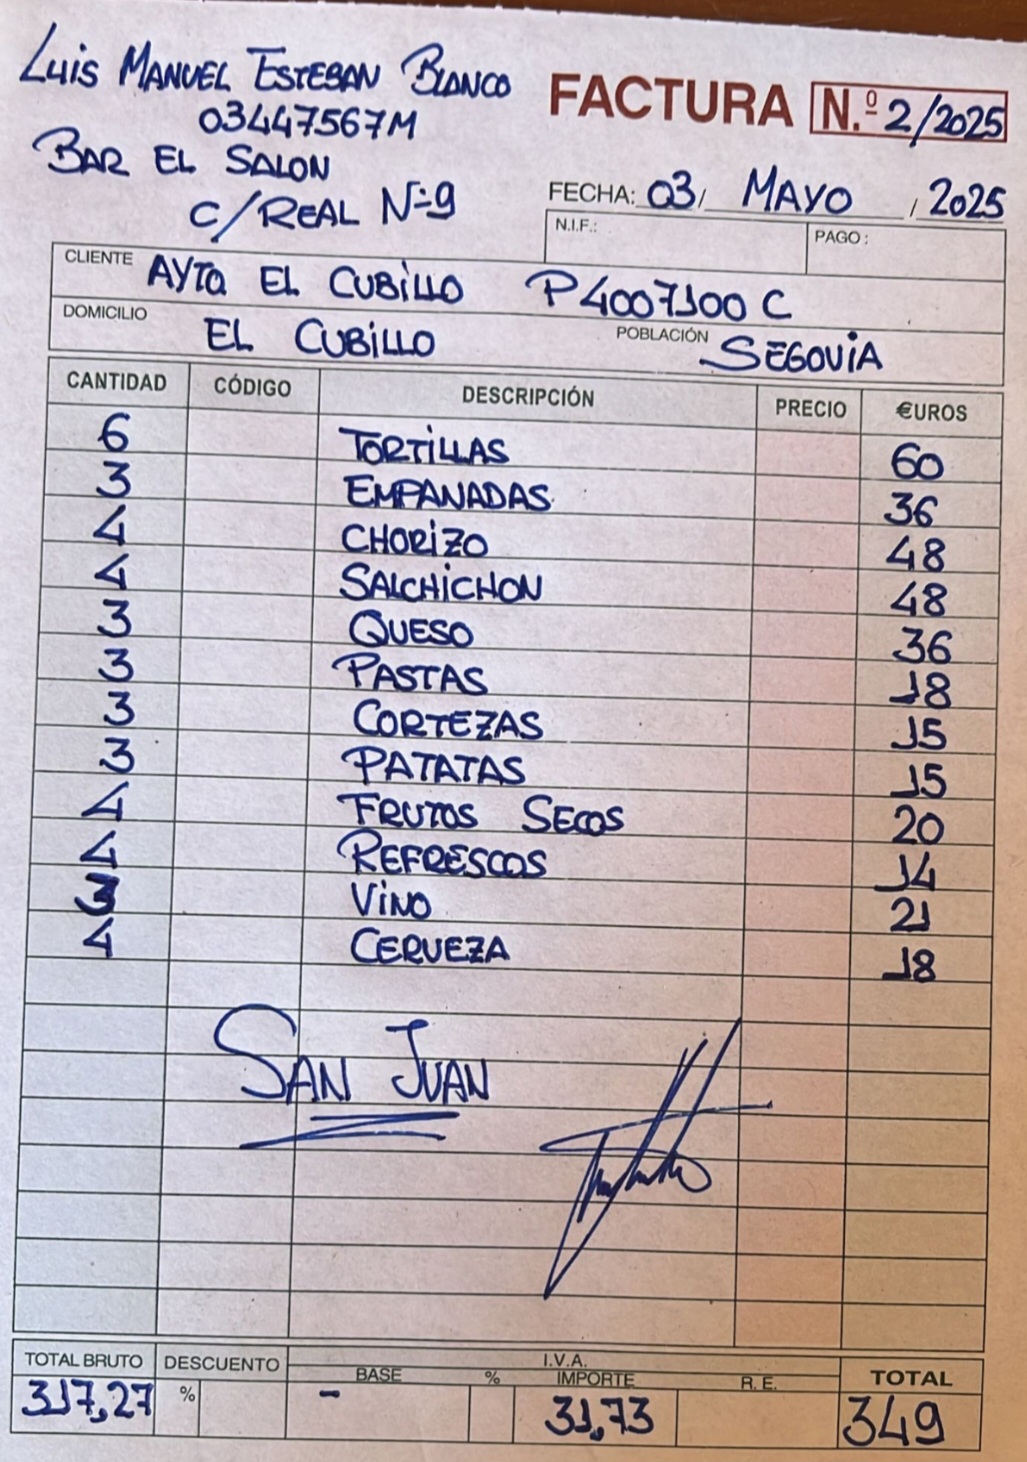 Luis MANUEL ESTEBAN BLANCO
03447567M
BAR EL SALON
C/REAL Nº9
FACTURA N.º 2/2025
FECHA: 03/ MAYO / 2025
N.I.F.: PAGO:
CLIENTE AYTO EL CUBILLO P4007100C
DOMICILIO EL CUBILLO POBLACIÓN SEGOVIA
CANTIDAD CÓDIGO DESCRIPCIÓN PRECIO €UROS
6 TORTILLAS 60
3 EMPANADAS 36
4 CHORIZO 48
4 SALCHICHON 48
3 QUESO 36
3 PASTAS 18
3 CORTEZAS 15
3 PATATAS 15
4 FRUTOS SECOS 20
4 REFRESCOS 14
3 VINO 21
4 CERVEZA 18
SAN JUAN
TOTAL BRUTO DESCUENTO I.V.A. TOTAL
BASE % IMPORTE R. E.
317,27 % - 31,73 349